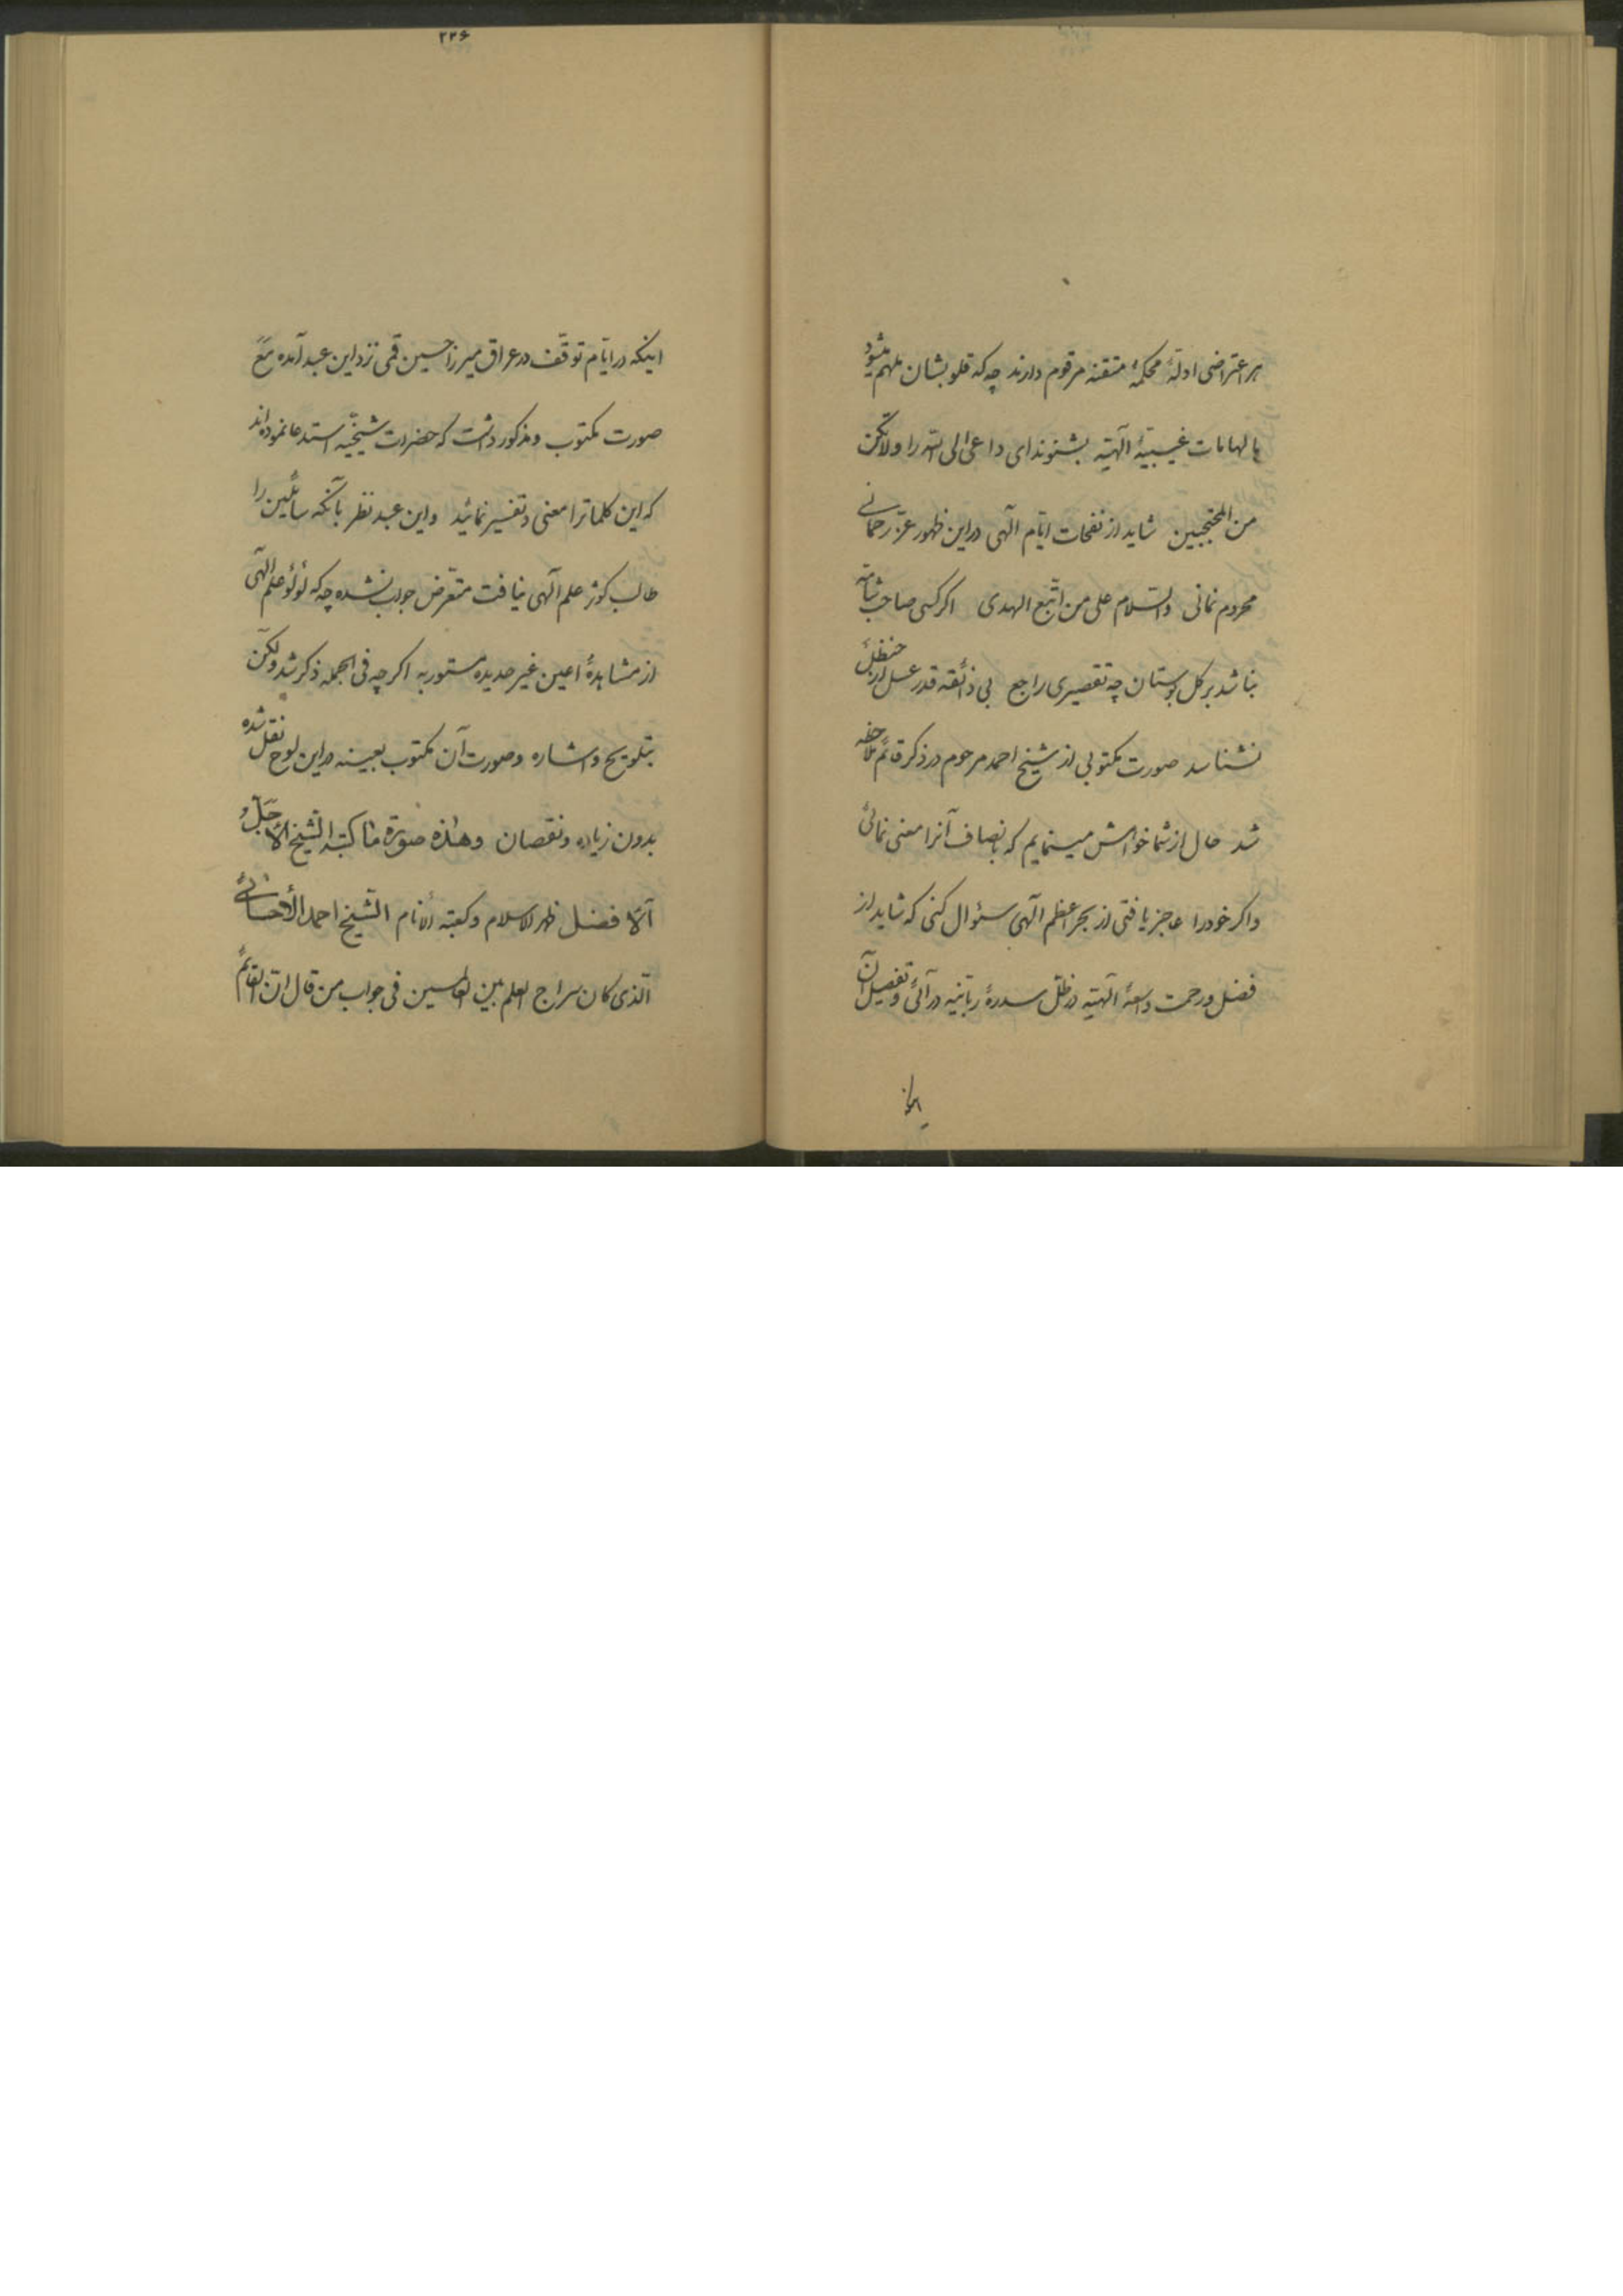 هر اعتراضی ادلّهٔ محکمهٔ متقنه مرقوم دارند چه که قلوبشان ملهم میشود
بالهامات غیبیّهٔ الٓهیّه بشنو ندای داعی الی اللّه را ولاتکن
من المحتجبین شاید از نفحات ایّام الٓهی در این ظهور عزّ رحمانی
محروم نمانی والسّلام علی من اتّبع الهدی اکر کسی صاحب شامّه
نباشد بر کل بوستان چه تقصیری راجع بی ذائقه قدر عسل از حنظل
نشناسد صورت مکتوبی از شیخ احمد مرحوم در ذکر قائم ملاحظه
شد حال از شما خواهش مینمایم که بانصاف آنرا معنی نمائی
واکر خود را عاجز یافتی از بحر اعظم الٓهی سئوال کنی که شاید از
فضل و رحمت واسعهٔ الٓهیّه در ظلّ سدرهٔ ربّانیه درآئی و تفصیل آن
۲۲۶
اینکه در ایّام توقّف در عراق میرزا حسین قمی نزد این عبد آمده مع
صورت مکتوب و مذکور داشت که حضرات شیخیّه استدعا نموده‌اند
که این کلماترا معنی و تفسیر نمائید و این عبد نظر بآنکه سائلین را
طالب کوثر علم الٓهی نیافت متعرّض جواب نشده چه که لؤلؤ علم الٓهی
از مشاهدهٔ اعین غیر حدیده مستور به اکر چه فی الجمله ذکر شد ولکن
بتلویح و اشاره و صورت آن مکتوب بعینه در این لوح نقل شده
بدون زیاده و نقصان وهذه صورة ما کتبه الشّیخ الأجلّ
الأفضل ظهر الاسلام وکعبة الأنام الشّیخ احمد الأحسائی
الّذی کان سراج العلم بین العالمین فی جواب من قال انّ القائم